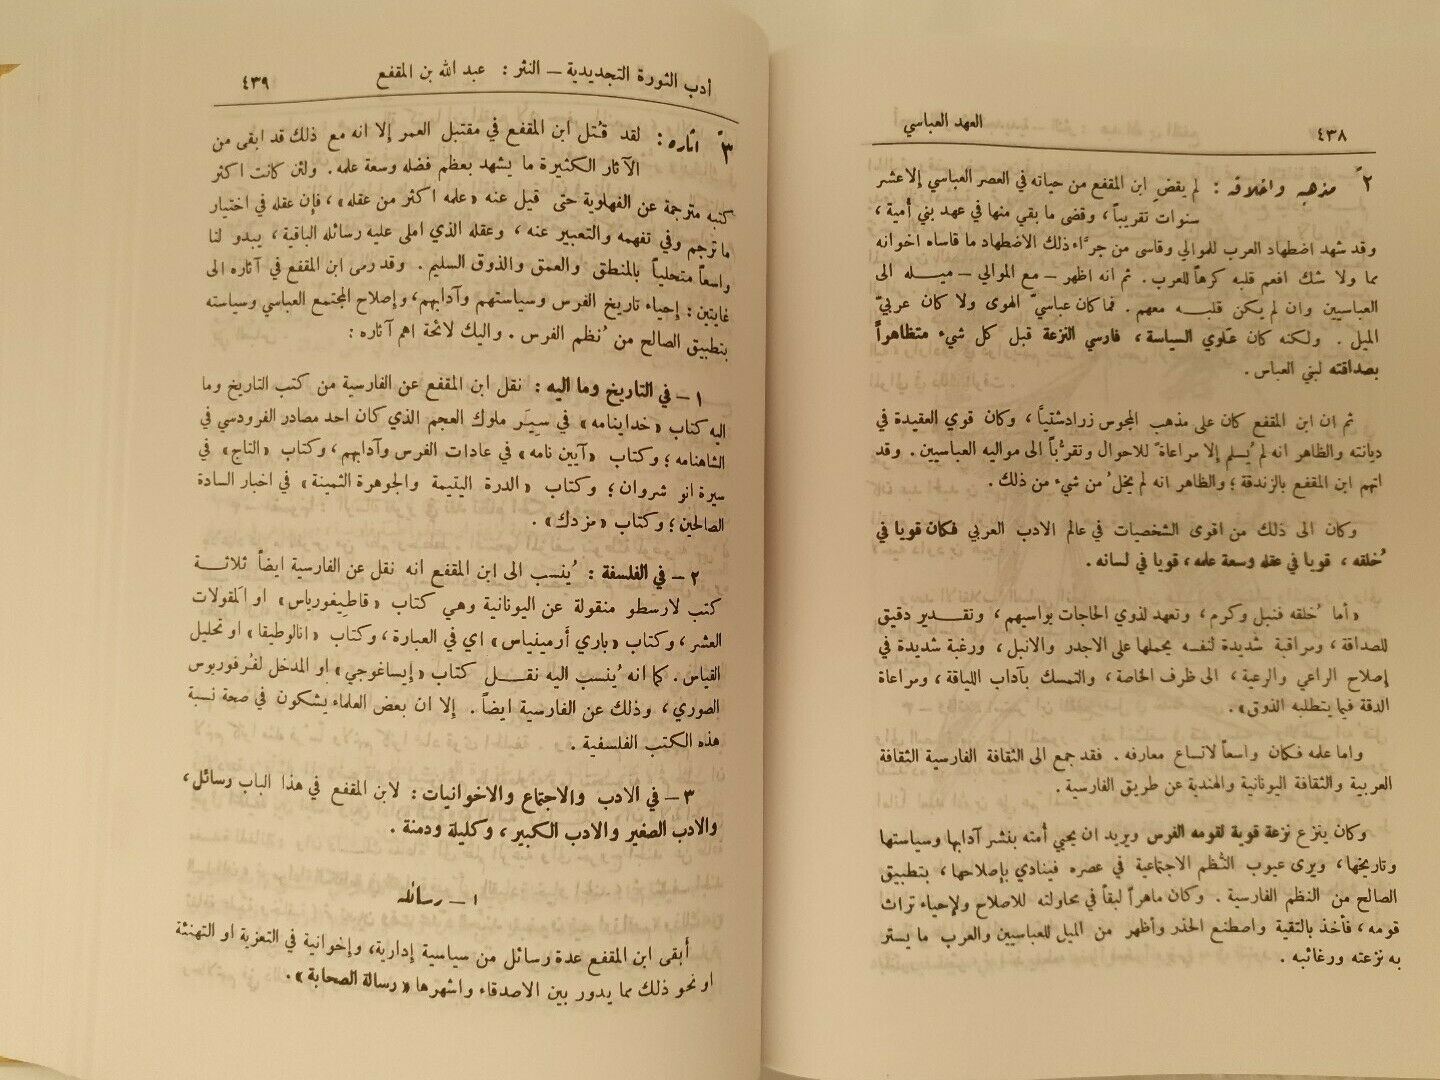 ٤٣٨
العهد العباسي
٢ً مذهبه واخلاقه : لم يقضِ ابن المقفع من حياته في العصر العباسي إلا عشر
سنوات تقريباً ، وقضى ما بقي منها في عهد بني أمية ،
وقد شهد اضطهاد العرب للموالي وقاسى من جرّاء ذلك الاضطهاد ما قاساه اخوانه
مما ولا شك افعم قلبه كرهاً للعرب . ثم انه اظهر – مع الموالي – ميله الى
العباسيين وان لم يكن قلبه معهم . فما كان عباسيّ الهوى ولا كان عربيّ
الميل . ولكنه كان علوي السياسة ، فارسي النزعة قبل كل شيء متظاهراً
بصداقته لبني العباس .
ثم ان ابن المقفع كان على مذهب المجوس زرادشتيّاً ، وكان قوي العقيدة في
ديانته والظاهر انه لم يُسلم إلا مراعاةً للاحوال وتقرُّباً الى مواليه العباسيين . وقد
اتهم ابن المقفع بالزندقة ؛ والظاهر انه لم يخلُ من شيء من ذلك .
وكان الى ذلك من اقوى الشخصيات في عالم الادب العربي فكان قويا في
خُلقه ، قويا في عقله وسعة علمه ، قويا في لسانه .
« أما خُلقه فنبل وكرم ، وتعهد لذوي الحاجات يواسيهم ، وتقدير دقيق
للصداقة ، ومراقبة شديدة لنفسه يحملها على الاجدر والانبل ، ورغبة شديدة في
إصلاح الراعي والرعية ، الى ظرف الخاصة ، والتمسك بآداب اللياقة ، ومراعاة
الدقة فيما يتطلبه الذوق » .
واما علمه فكان واسعاً لاتساع معارفه . فقد جمع الى الثقافة الفارسية الثقافة
العربية والثقافة اليونانية والهندية عن طريق الفارسية .
وكان ينزع نزعة قوية لقومه الفرس ويريد ان يحيي أمته بنشر آدابها وسياستها
وتاريخها ، ويرى عيوب النُظم الاجتماعية في عصره فينادي بإصلاحها ، بتطبيق
الصالح من النظم الفارسية . وكان ماهراً لبقاً في محاولته للاصلاح ولإحياء تراث
قومه ، فأخذ بالتقية واصطنع الحذر وأظهر من الميل للعباسيين والعرب ما يستر
به نزعته ورغائبه .
أدب الثورة التجديدية – النثر : عبد الله بن المقفع
٤٣٩
٣ً آثاره : لقد قُتل ابن المقفع في مقتبل العمر إلا انه مع ذلك قد ابقى من
الآثار الكثيرة ما يشهد بعظم فضله وسعة علمه . ولئن كانت اكثر
كتبه مترجمة عن الفهلوية حتى قيل عنه « علمه اكثر من عقله » ، فإن عقله في اختيار
ما ترجم وفي تفهمه والتعبير عنه ، وعقله الذي املى عليه رسائله الباقية ، يبدو لنا
واسعاً متحلياً بالمنطق والعمق والذوق السليم . وقد رمى ابن المقفع في آثاره الى
غايتين : إحياء تاريخ الفرس وسياستهم وآدابهم ، وإصلاح المجتمع العباسي وسياسته
بتطبيق الصالح من نُظم الفرس . واليك لائحة اهم آثاره :
١ – في التاريخ وما اليه : نقل ابن المقفع عن الفارسية من كتب التاريخ وما
اليه كتاب « خداينامه » في سِيَر ملوك العجم الذي كان احد مصادر الفردوسي في
الشاهنامه ؛ وكتاب « آيين نامه » في عادات الفرس وآدابهم ، وكتاب « التاج » في
سيرة انو شروان ؛ وكتاب « الدرة اليتيمة والجوهرة الثمينة » في اخبار السادة
الصالحين ؛ وكتاب « مزدك » .
٢ – في الفلسفة : يُنسب الى ابن المقفع انه نقل عن الفارسية ايضاً ثلاثة
كتب لارسطو منقولة عن اليونانية وهي كتاب « قاطيغورياس » او المقولات
العشر ، وكتاب « باري أرمينياس » اي في العبارة ، وكتاب « انالوطيقا » او تحليل
القياس . كما انه يُنسب اليه نقل كتاب « إيساغوجي » او المدخل لفُرفوريوس
الصوري ، وذلك عن الفارسية ايضاً . إلا ان بعض العلماء يشكون في صحة نسبة
هذه الكتب الفلسفية .
٣ – في الادب والاجتماع والاخوانيات : لابن المقفع في هذا الباب رسائل ،
والادب الصغير والادب الكبير ، وكليلة ودمنة .
١ – رسائله
أبقى ابن المقفع عدة رسائل من سياسية إدارية ، وإخوانية في التعزية او التهنئة
او نحو ذلك مما يدور بين الاصدقاء واشهرها « رسالة الصحابة » .